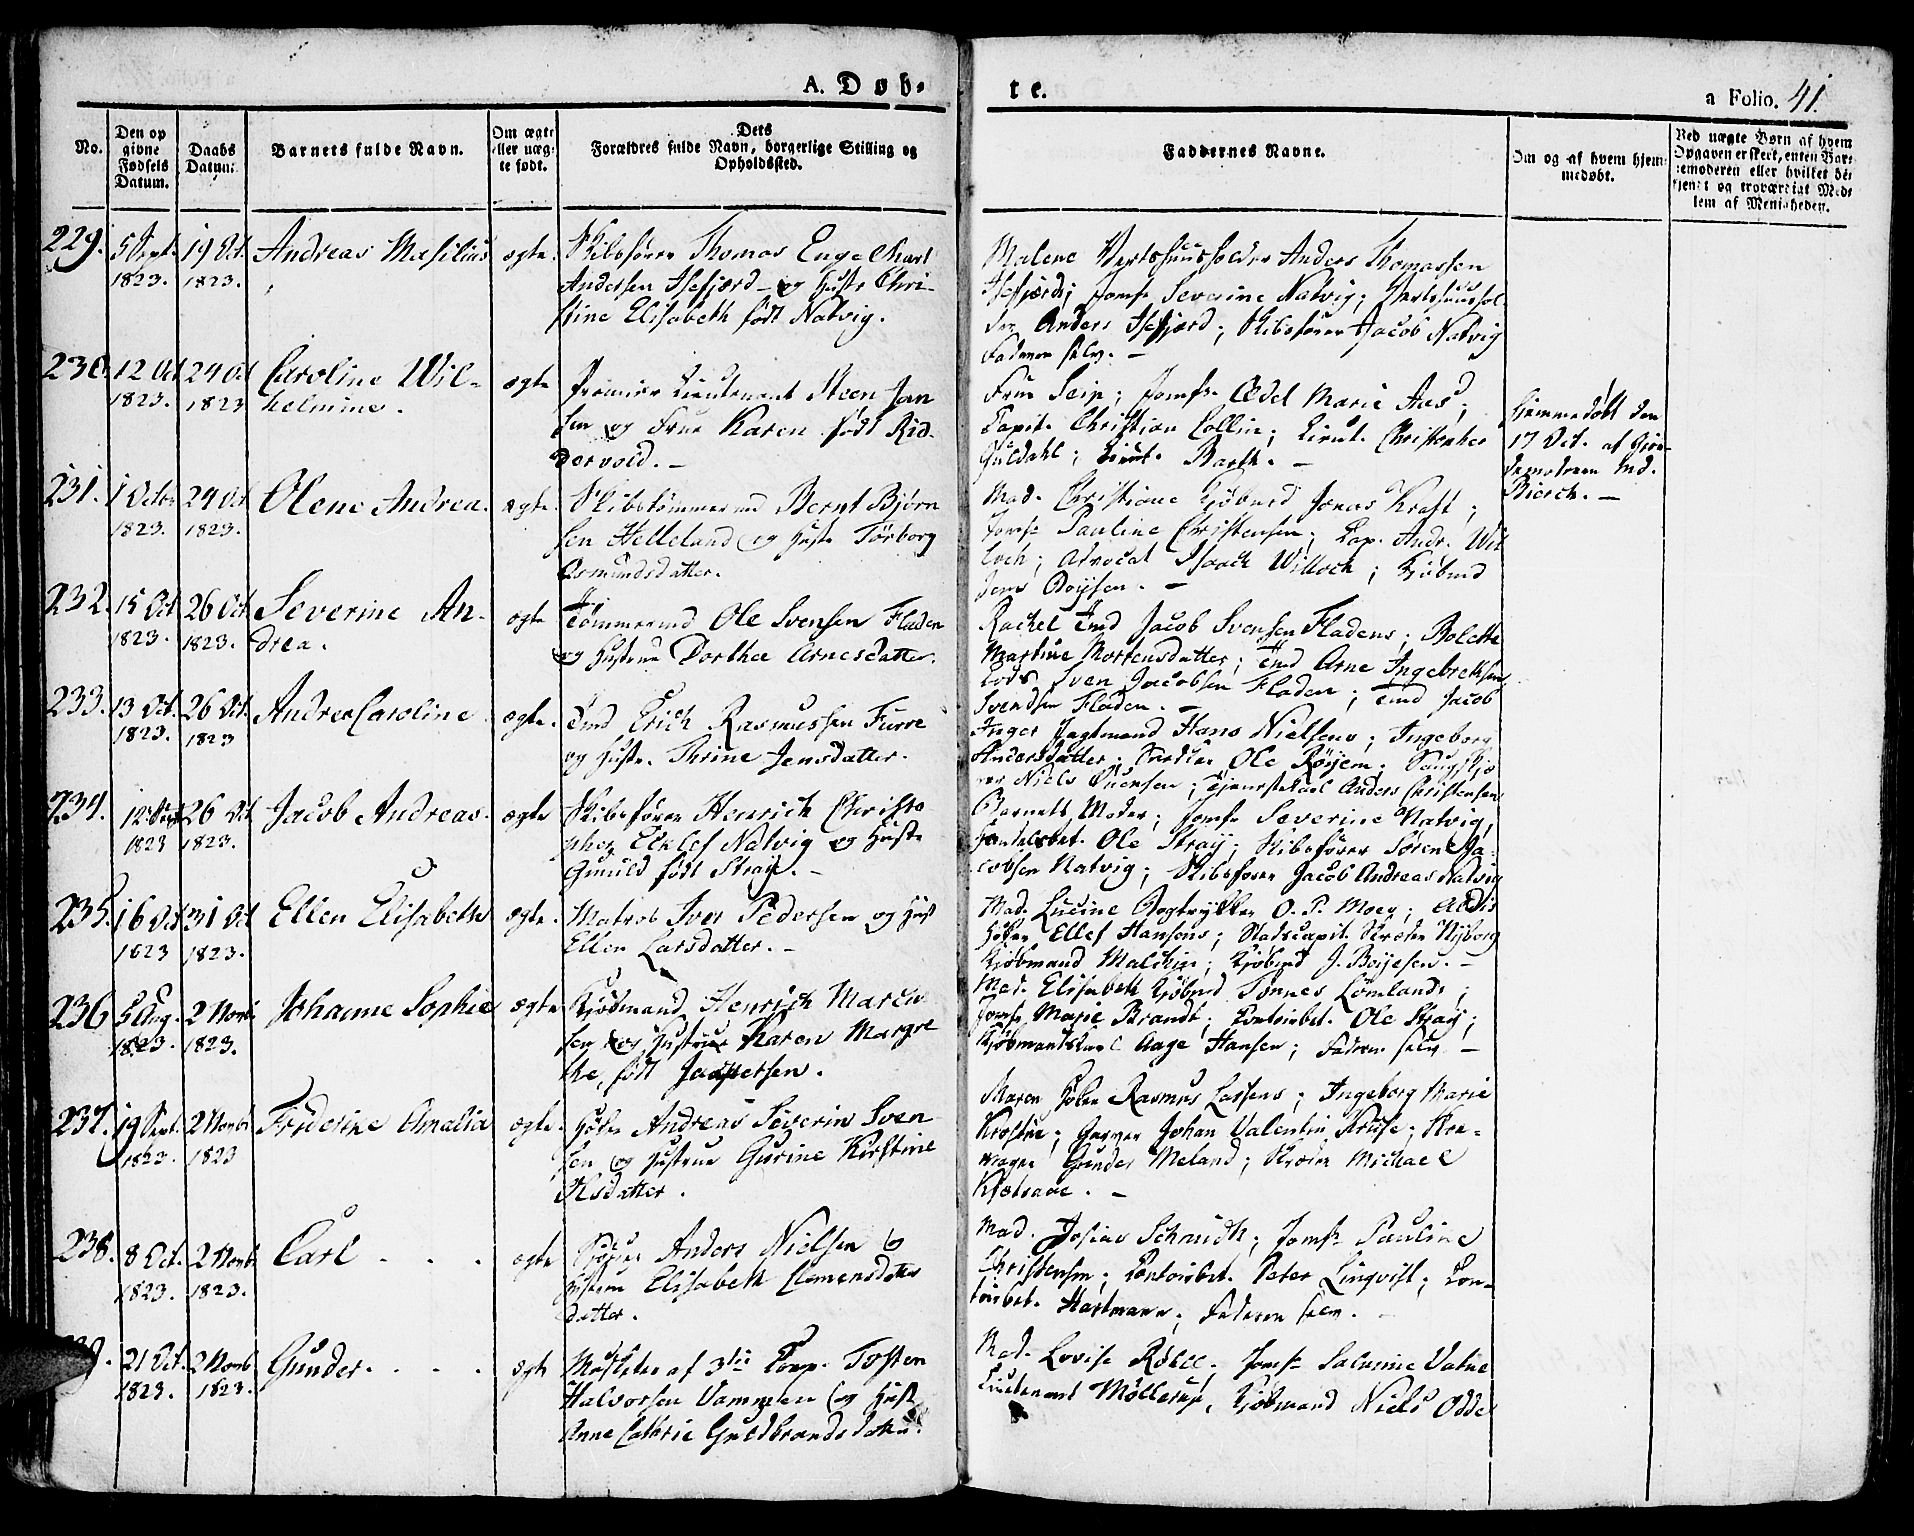 A. Døb-
te.
a Folio. 41.
No.
Den op
givne
Fødsels
Datum.
Daabs
Datum:
Barnets fulde Navn.
Om ægte
eller uæg-
te født.
Dets
Forældres fulde Navn, borgerlige Stilling og
Opholdssted.
Faddernes Navne.
Om og af hvem hjem-
medøbt.
Ved uægte Børn af hvem
Opgaven er skeet, enten Bar-
nemoderen eller hvilket be-
kjendt og troværdigt Med-
lem af Menigheden.
229. 5 Sept. 19 Oct. Andreas Masilius ægte. Skibsfører Thomas Engelhart
1823. 1823.
Andersen Isefjærd og Hustr. Chri-
stine Elisabeth født Natvig.
Malene Vertshuusholder Anders Thomassen
Isefjærds; Jomfr. Severine Natvig; Vertshuushol-
der Anders Isefjærd; Skibsfører Jacob Natvig
Faderen selv. —
230. 12 Oct 24 Oct Caroline Wil-
1823. 1823 helmine.
ægte
Premier Lieutenant Steen Jan
sen og Frue Karen født Rid-
dervold. —
Frue Seip; Jomfr. Ædel Marie Aas;
Capit. Christian Collin; Lieut. Christopher
Guldahl; Lieut. Barth. —
Hjemmedøbt den
17 Oct. af Gjor-
demoderen Md.
Biersch. —
231. 1 Octbr 24 Oct Olene Andrea. ægte. Skibstømmermd Bernt Bjørn
1823. 1823.
sen Helleland og Hustr Tørborg
Osmundsdatter.
Mad. Christiane Kjøbmd Jonas Kraft;
Jomfr Pauline Christensen; Cap. Andr. Wil
loch; Advocat Isaach Willoch; Kjøbmd
Jens Boysen. —
232. 15 Oct 26 Oct. Severine An-
1823. 1823. drea.
ægte
Tømmermd Ole Svensen Fladen
og Hustrue Dorthea Arnesdatter.
Rachel Tmd Jacob Svensen Fladens; Bolette
Martine Mortensdatter; Tmd Arne Ingebrethsen
Lods Sven Jacobsen Fladen; Tmd Jacob
Svendsen Fladen. —
233. 13 Oct. 26 Oct. Andrea Caroline. ægte. Tmd Erich Rasmussen Furre
1823. 1823
og Hustr. Thrine Jensdatter.
Inger Jagtmand Hans Nielsens; Ingeborg
Andersdatter; Ole Røyem;
Niels; Tjenestekarl Anders Christensen
234. 12 Sept 26 Oct Jacob Andreas. ægte Skibsfører Henrich Christo
1823 1823.
pher Ecklef Natvig og Hustr
Gunild født Stray. —
Barnets Moder; Jomfr Severine Natvig,
Handelsbet. Ole Stray; Skibsfører Søren Ja-
cobsen Natvig; Skibsfører Jacob Andreas Natvig
235. 16 Oct 31 Oct Ellen Elisabeth ægte. Matros Iver Pedersen og Hust
1823 1823.
Ellen Larsdatter. —
Mad. Lucine Bogtrykker O. P. Moes;
Høker Ellef Hansens; Stadscapit. Skræder Nyborg
Kjøbmand Malthie; Kjøbmd J. Boyesen. —
236 5 Aug. 2 Novb. Johanne Sophie ægte Kjøbmand Henrich Marcu
1823. 1823.
sen og Hustrue Karen Margre
the, født Jaspersen.
Mad. Elisabeth Kjøbmd Tønnes Lømlands;
Jomfr Marie Brandt; Contoirbet. Ole Stray;
Kjøbmandskarl Aage Hansen; Faderen selv —
237. 19 Sept. 2 Novbr Friderike Amalia ægte. Høker Andreas Severin Sven
1823. 1823
sen og Hustrue Gurine Kirstine
Olsdatter.
Maren Høker Rasmus Larsens; Ingeborg Marie
Johan Valentin Kruse;
Gunder Meland; Skræder Michael
238. 8 Oct. 2 Novbr Carl . . . ægte
1823. 1823.
Anders Nielsen og
Hustrue Elisabeth Clemensdatter
datter.
Mad. Josias Schmidth; Jomfr. Pauline
Christensen; Contoirbet. Peter Linqvist; Con-
toirbet. Hartmann; Faderen selv. —
21 Oct. 2 Novb. Gunder. . . . ægte
1823. 1823.
Musketer af 3die Comp. Tosten
Halvorsen Vammelen og Hustr
Anne Cathrie Guldbrandsdatter.
Mad. Lovise Røbel. Jomfr Salumine Vatne
Lieutenant Møllerup, Kjøbmand Niels Odde